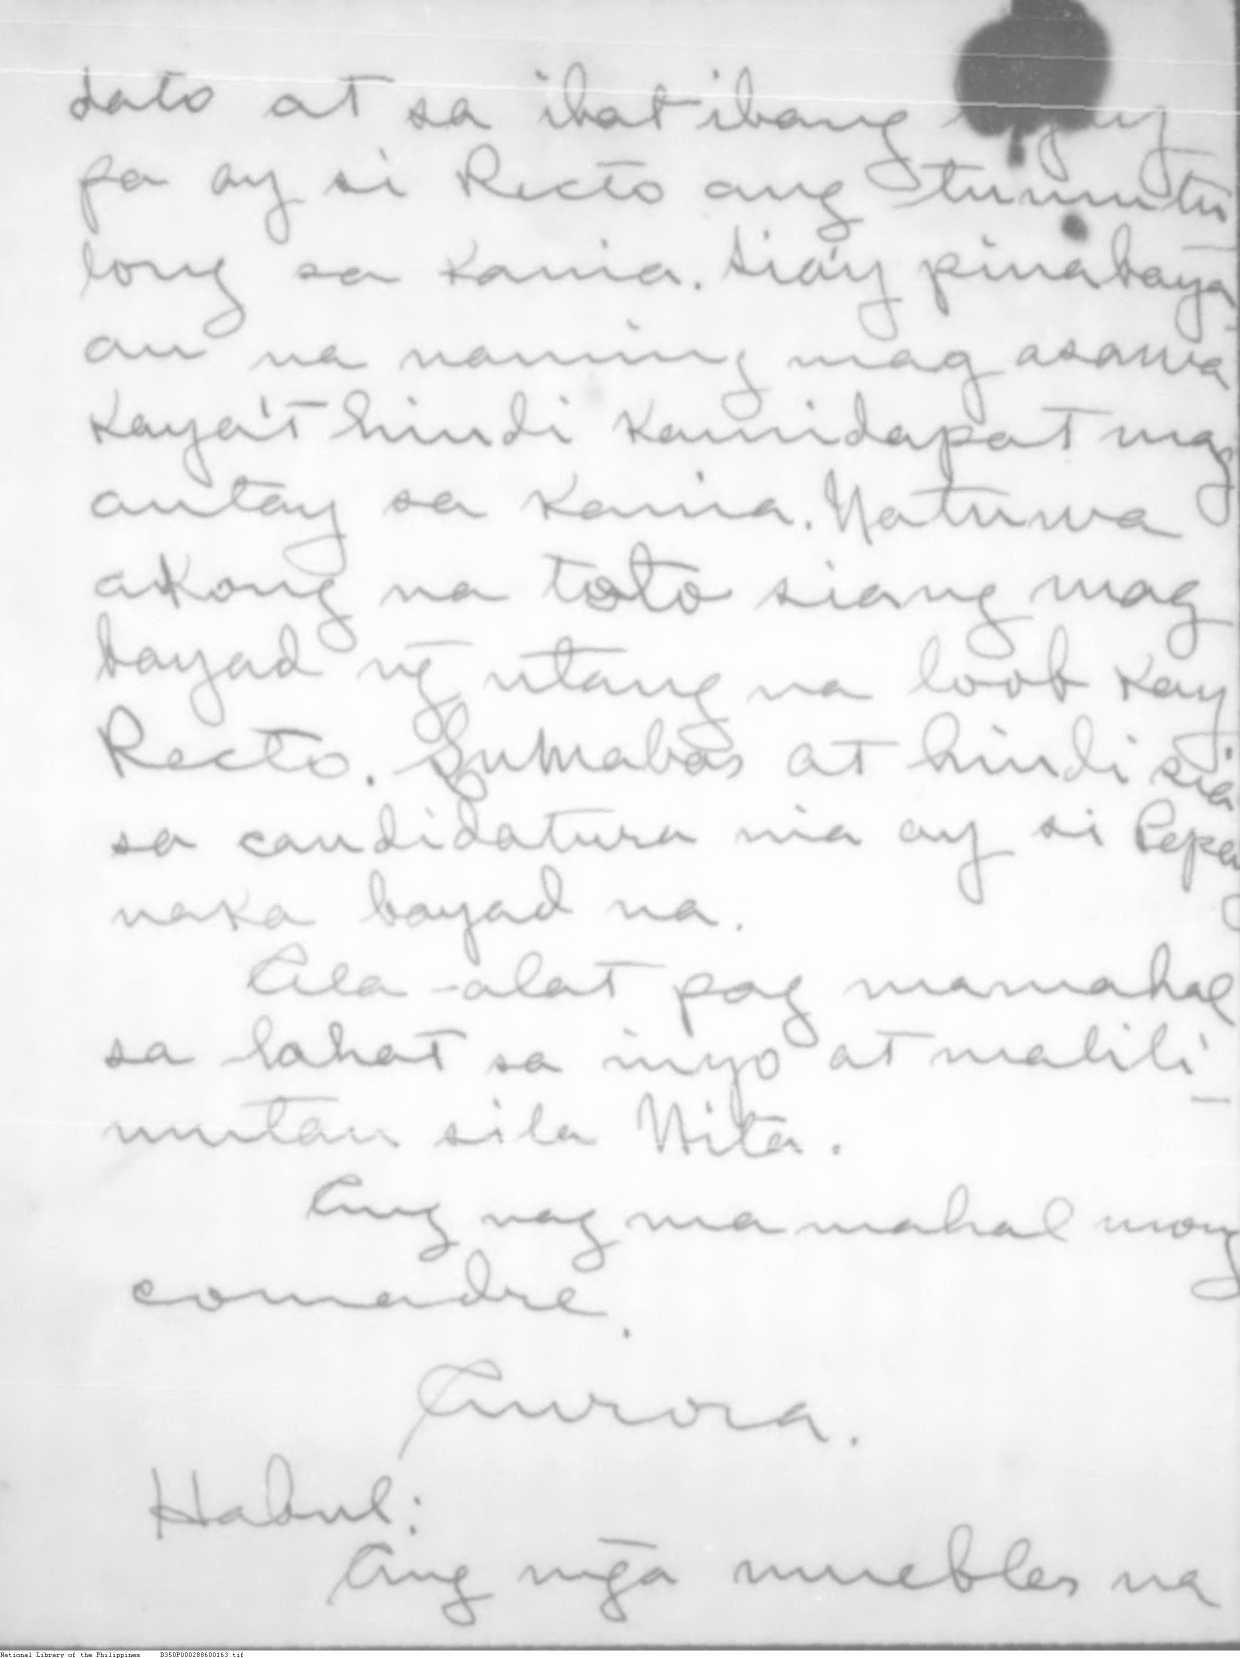 dato at sa ibat ibang
pa ay si Recto ang tumutu
long sa kania. Sia'y pinabaya
an na naming mag asawa
kaya't hindi kami dapat mag
antay sa kania. Natuwa
akong na toto siang mag
bayad ng̃ utang na loob kay
Recto. Lumabas at hindi sia
sa candidatura nia ay si Pepe
naka bayad na.
Ala-alat pag mamahal
sa lahat sa inyo at malili-
mutan sila Nita.
Ang nag mamahal mong
comadre.
Aurora.
Habul:
Ang mg̃a muebles na
National Library of the Philippines D350P000288600163.tif